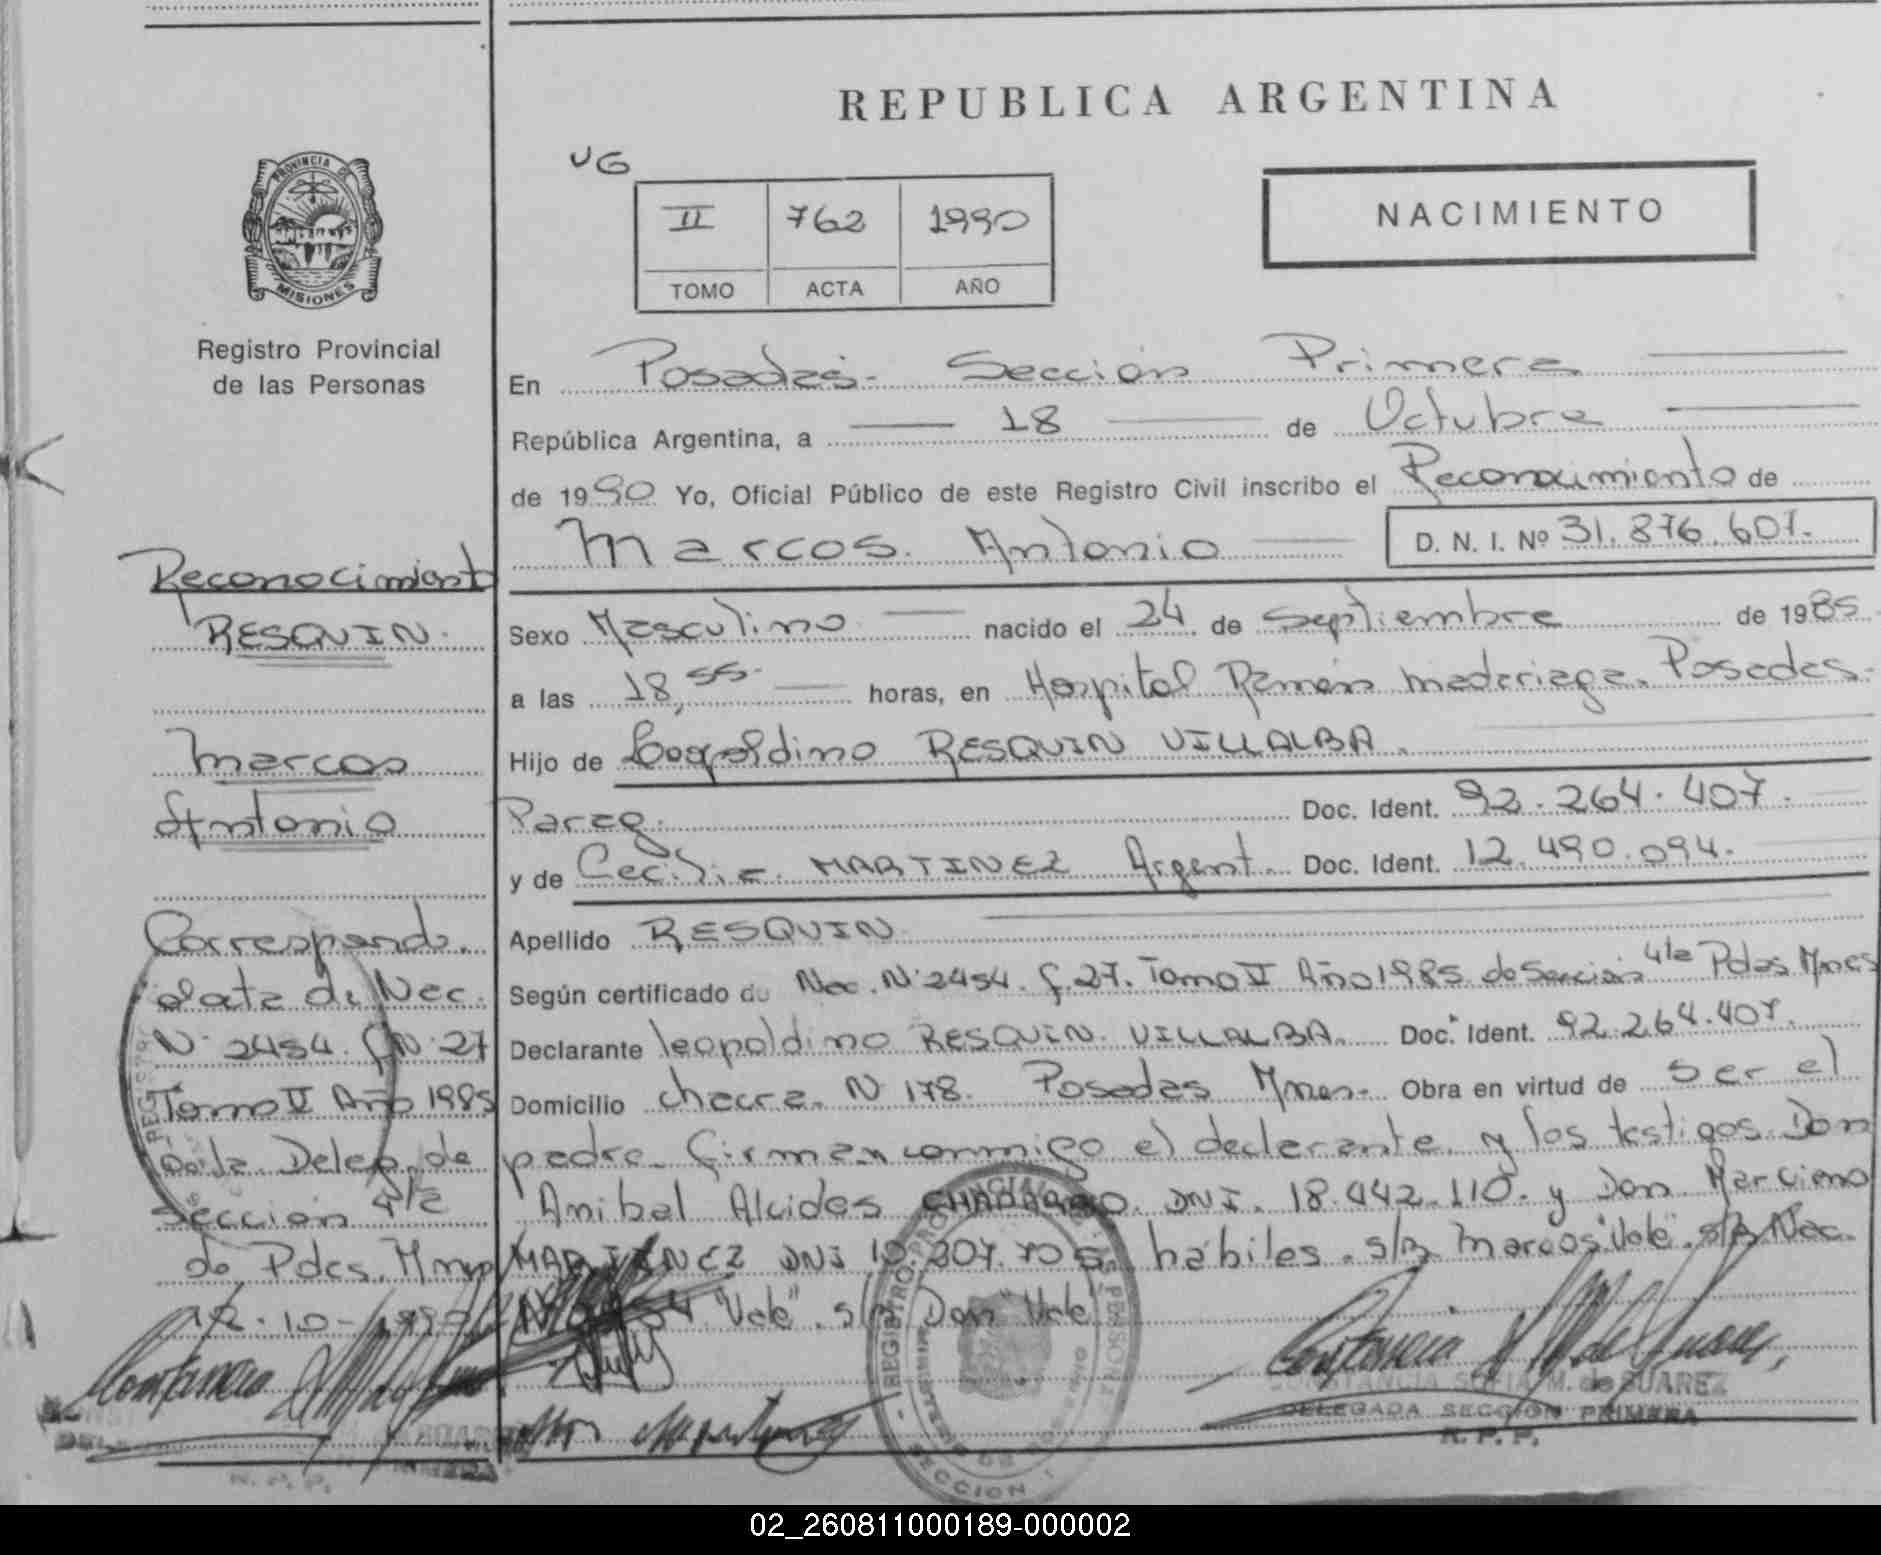 REPUBLICA ARGENTINA
VG
II 762 1990
TOMO ACTA AÑO
NACIMIENTO
PROVINCIA DE
MISIONES
Registro Provincial
de las Personas
En Posadas- Sección Primera
República Argentina, a 18 de Octubre
de 1990 Yo, Oficial Público de este Registro Civil inscribo el Reconocimiento de
Marcos Antonio D. N. I. Nº 31.876.607.
Sexo Masculino nacido el 24 de Septiembre de 1985
a las 18,55 horas, en Hospital Ramón Madariaga. Posadas.
Hijo de Leopoldino RESQUIN VILLALBA.
Parag. Doc. Ident. 92.264.407.
y de Cecilia MARTINEZ Argent. Doc. Ident. 12.490.094.
Apellido RESQUIN
Según certificado de Nac. Nº 2454. f. 27. Tomo V Año 1985 de Sección 4ta Pdas Mnes
Declarante leopoldino RESQUIN VILLALBA. Doc. Ident. 92.264.407.
Domicilio chacra N 178. Posadas Mnes. Obra en virtud de ser el
padre. Firman conmigo el declarante y los testigos Don
Anibal Alcides DNI. 18.442.110. y Don Marciano
MARTINEZ DNI 10.307.705 hábiles. s/r Marcos "Vale". s/r Nac.
Nº 2454 "Vale". s/r Don "Vale"
CONSTANCIA SOFIA M. de SUAREZ
DELEGADA SECCION PRIMERA
R. P. P.
Reconocimiento
RESQUIN.
Marcos
Antonio
Corresponde
al acta de Nac.
N. 2454. f N. 27
Tomo V Año 1985
de la Deleg. de
Sección 4ta
de Pdas. Mnes
R. P. P.
02_260811000189-000002